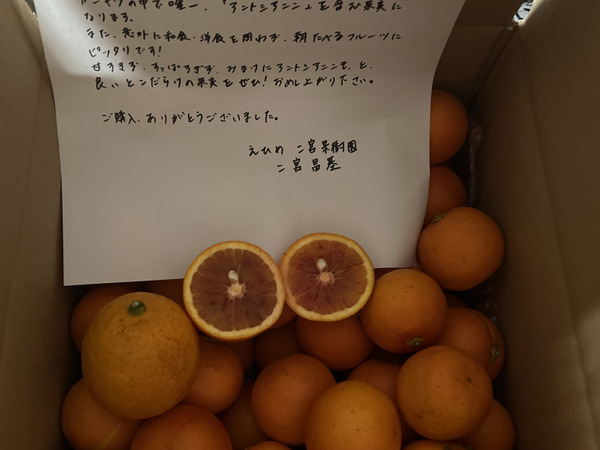 の中で唯一、「アントシアニン」を含む果実に
なります。
また、意外に和食・洋食を問わず、朝たべるフルーツに
ピッタリです！
甘すぎず、すっぱすぎず、おまけにアントシアニンで、と、
良いとこだらけの果実をぜひ！おめし上がり下さい。
ご購入、ありがとうございました。
えひめ 二宮果樹園
二宮昌基